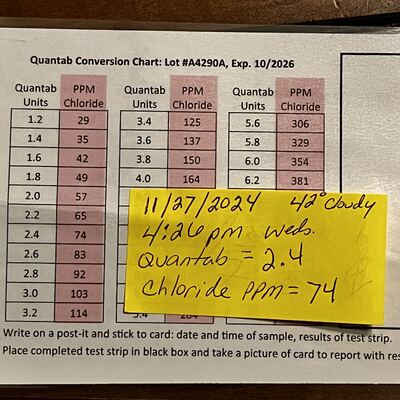 Quantab Conversion Chart: Lot #A4290A, Exp. 10/2026
Quantab Units PPM Chloride Quantab Units PPM Chloride Quantab Units PPM Chloride
1.2 29 3.4 125 5.6 306
1.4 35 3.6 137 5.8 329
1.6 42 3.8 150 6.0 354
1.8 49 4.0 164 6.2 381
2.0 57
2.2 65
2.4 74
2.6 83
2.8 92
3.0 103
3.2 114
11/27/2024 42° Cloudy
4:26 pm Weds.
Quantab = 2.4
Chloride PPM = 74
Write on a post-it and stick to card: date and time of sample, results of test strip.
Place completed test strip in black box and take a picture of card to report with res